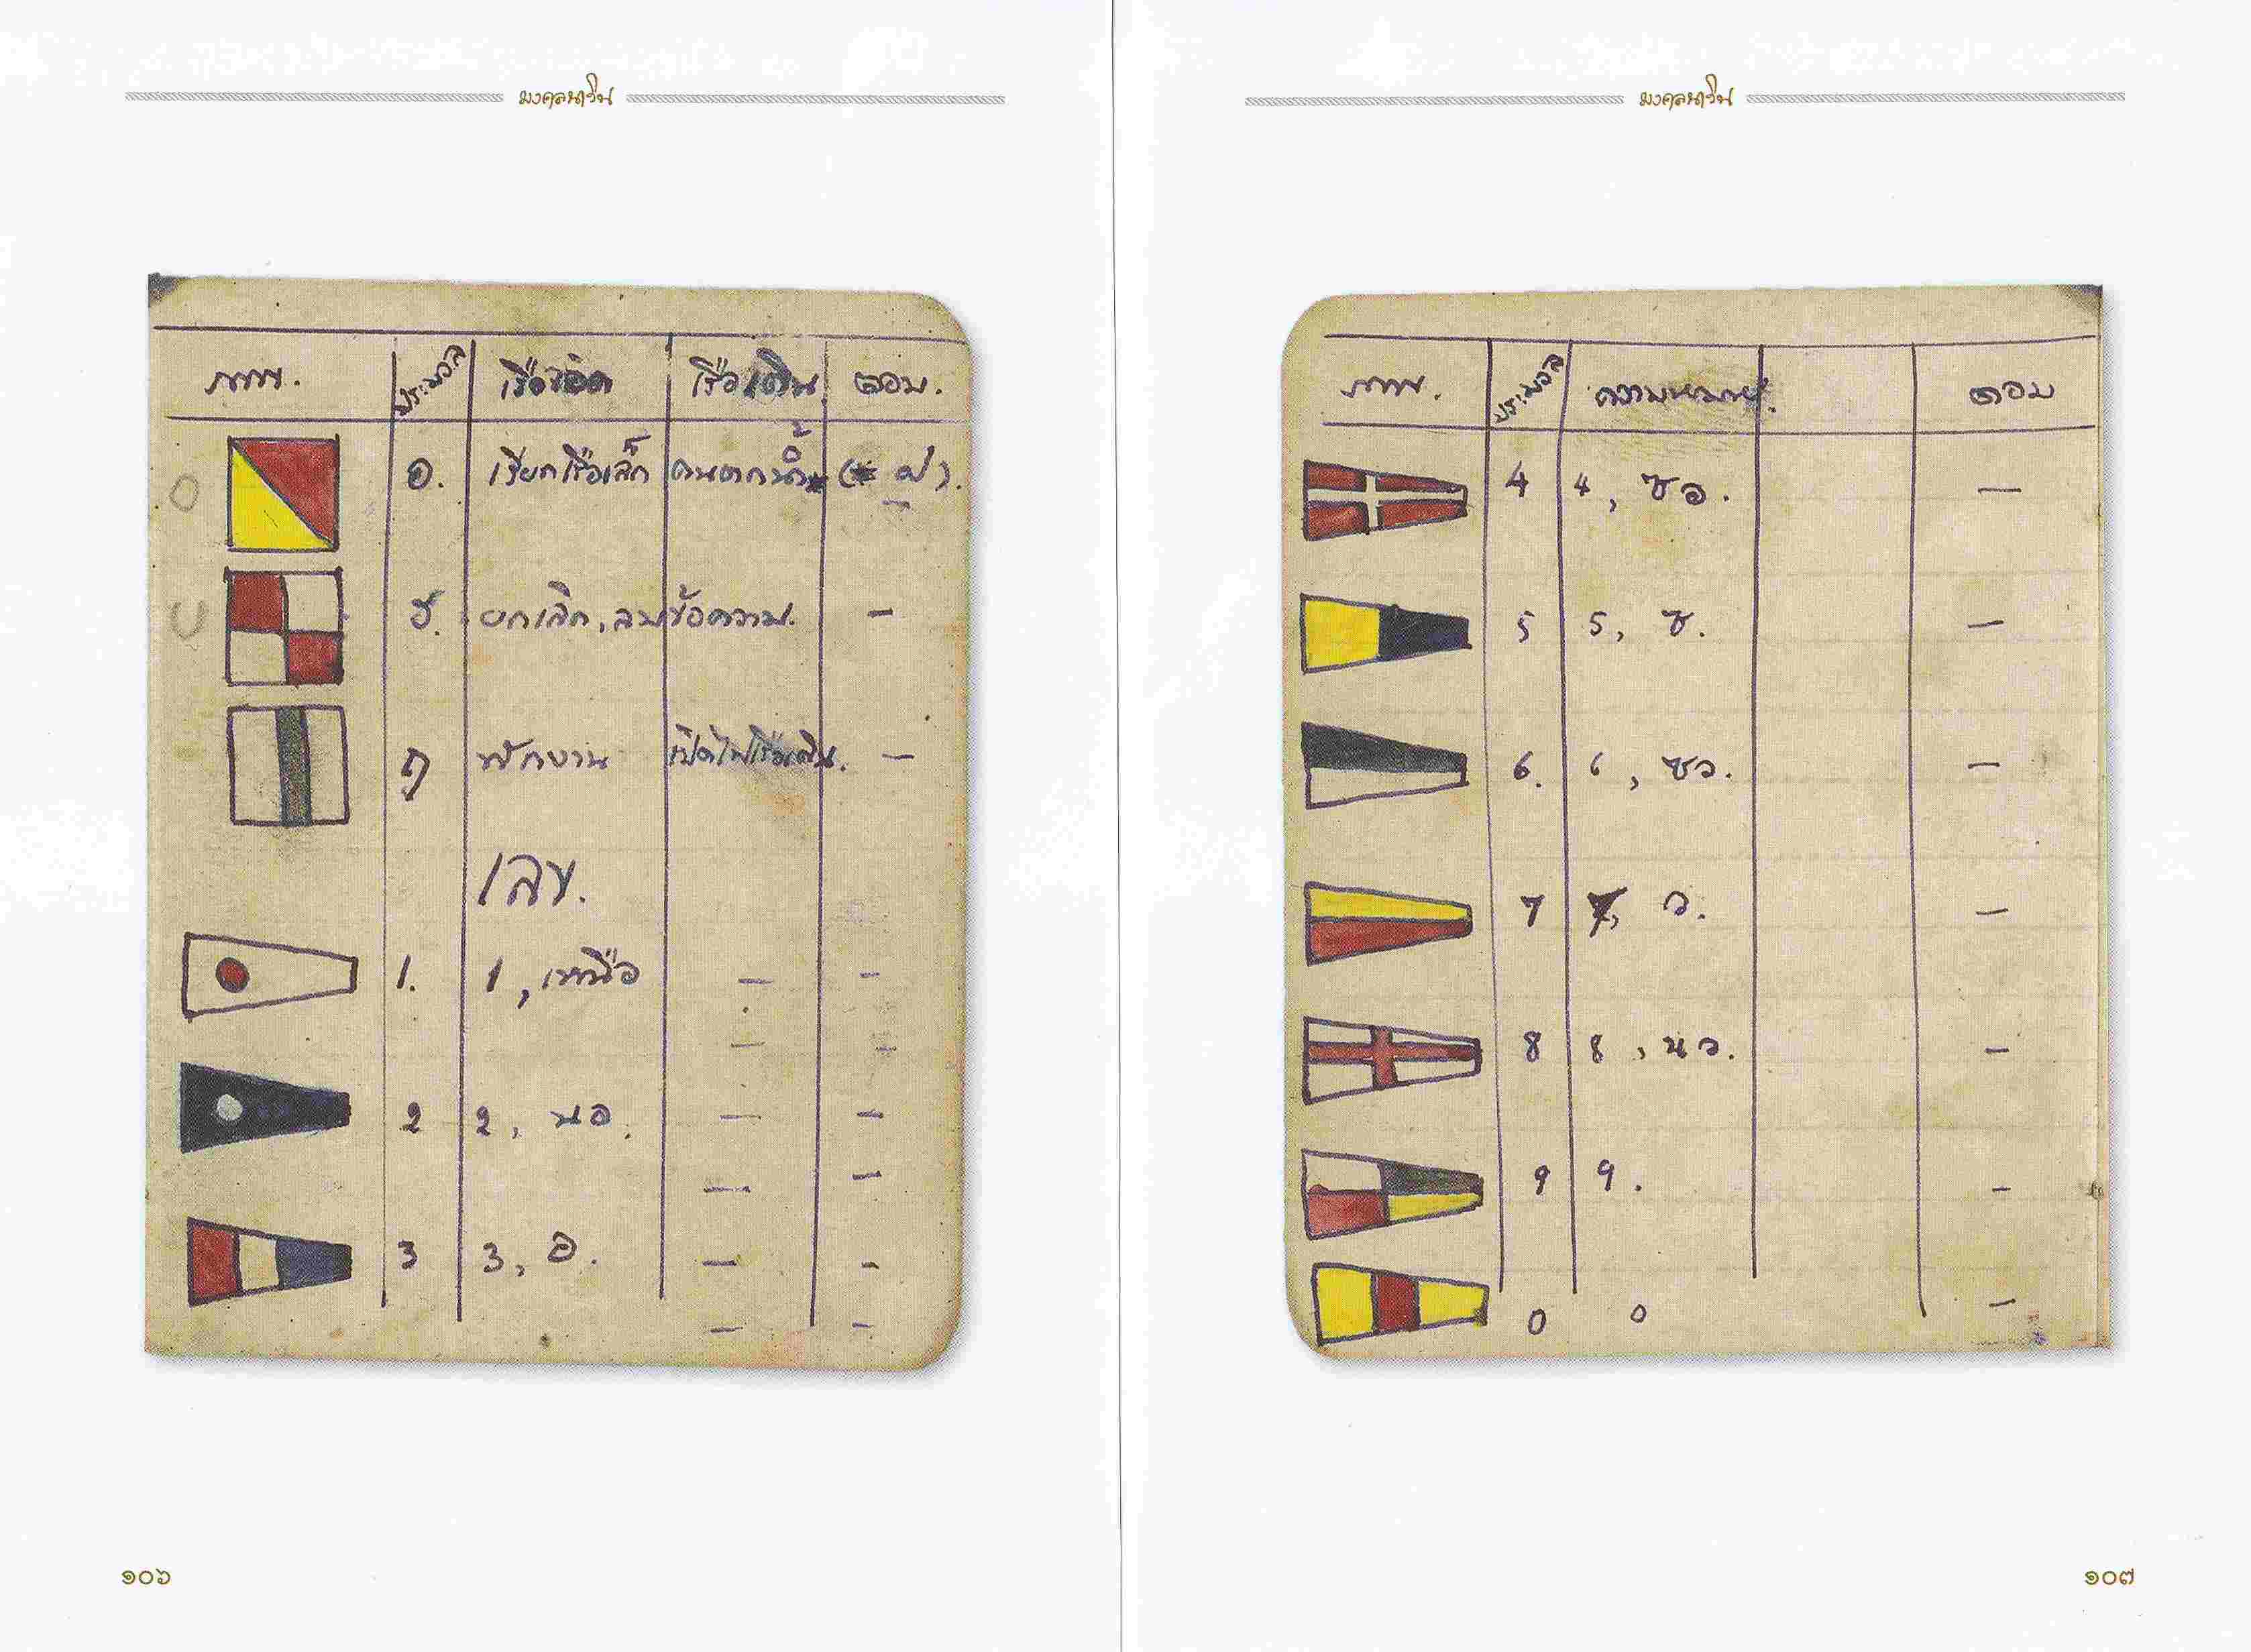 มงคลนาวิน
ภาพ. ประมวล เรือจอด เรือเดิน ตอบ.
O อ. เรียกเรือเล็ก คนตกน้ำ ( ฝ).
U ฮ. ยกเลิก, ลบข้อความ. —
ฦ พักงาน เปิดไฟเรือเดิน. —
เลข.
1. 1, เหนือ — -
— -
2 2, นอ. — —
— —
3 3, อ. — -
— -
๑๐๖
มงคลนาวิน
ภาพ. ประมวล ความหมาย. ตอบ
4 4, ซอ. —
5 5, ซ. —
6. 6, ซว. —
7 7, ว. —
8 8, นว. —
9 9. -
0 0 —
๑๐๗